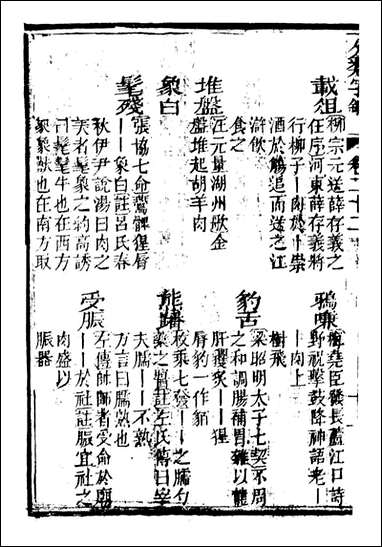 卷二十二
載俎 柳宗元送薛存義之
任序河東薛存義將
行柳子——肉於——崇
酒於觴追而送之江
滸飲
食之
鴉啄 梅堯臣發長蘆江口詩
野祀擊鼓降神語老——
——肉上
樹飛
堆盤 汪元量湖州歌金
盤堆起胡羊肉
豹舌 梁昭明太子七契不周
之和調腸補胃雜以龍
肝玃炙——猩
脣豹一作貊
象白
髦殘 張協七命鷰髀猩脣
——象白註呂氏春
秋伊尹說湯曰肉之
美者髦象之約高誘
曰髦髦牛也在西方
象象獸也在南方取
熊蹯 枚乘七發——之臑勺
藥之醬註左氏傳曰宰
夫臑——不熟
方言曰臑熟也
受脤 左傳帥師者受命於廟
——於社註脤宜社之
肉盛以
脤器